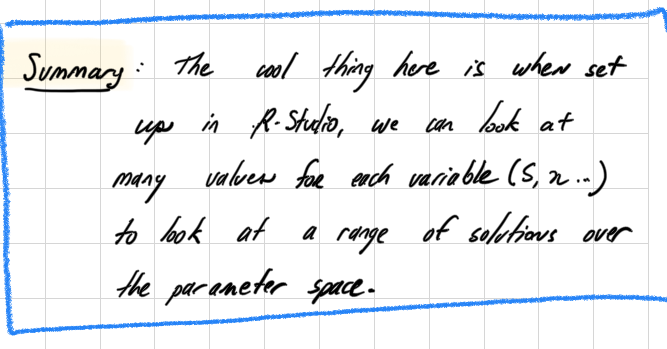 Summary: The cool thing here is when set
up in R-Studio, we can look at
many values for each variable (S, x...)
to look at a range of solutions over
the parameter space.